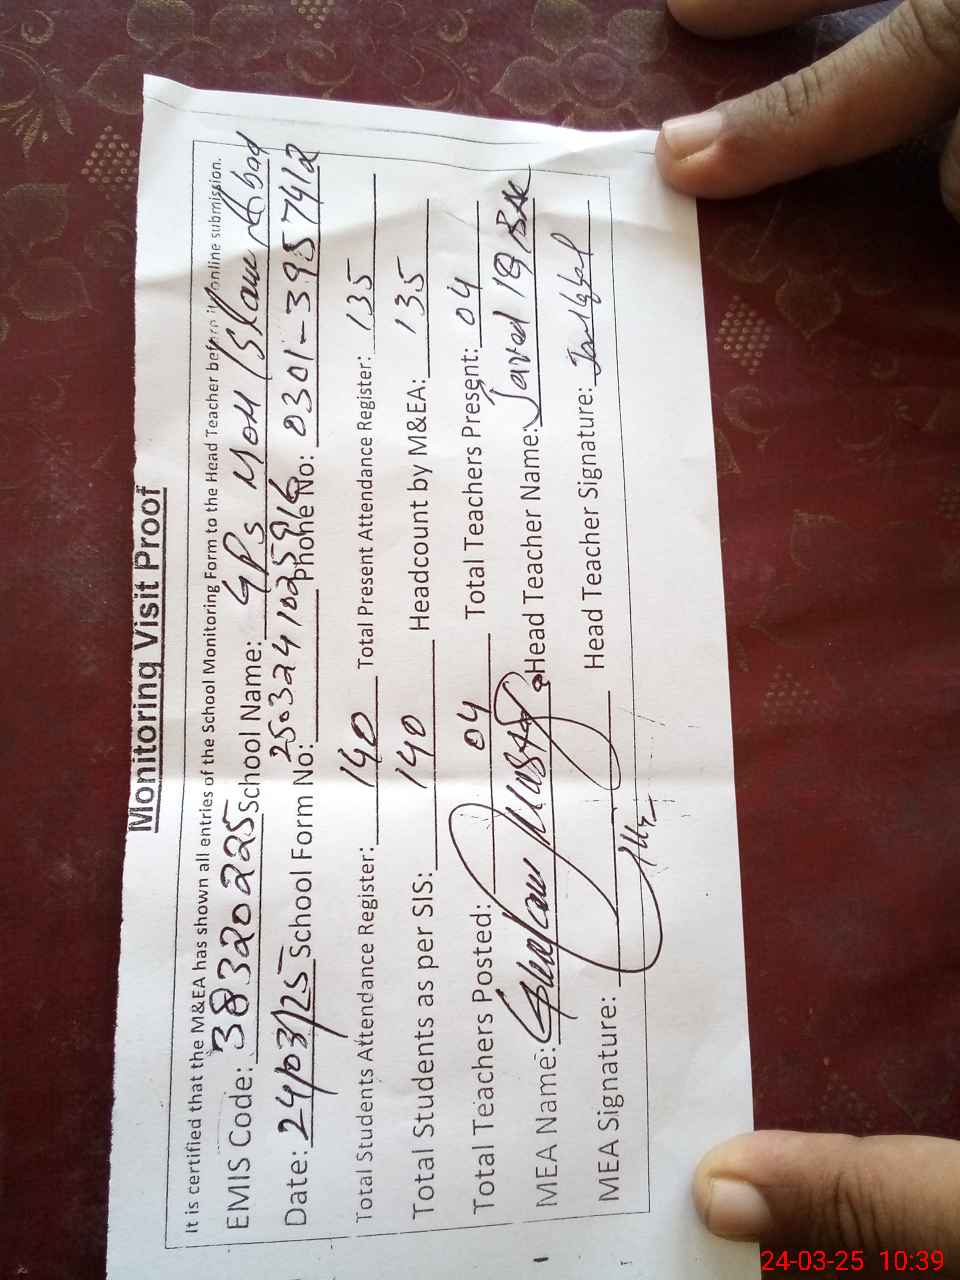 Monitoring Visit Proof
It is certified that the M&EA has shown all entries of the School Monitoring Form to the Head Teacher before it online submission.
EMIS Code: 38320225 School Name: GPS MOM Islam Abad
Date: 24/03/25 School Form No: 2503241025916 Phone No: 0301-3957412
Total Students Attendance Register: 140 Total Present Attendance Register: 135
Total Students as per SIS: 140 Headcount by M&EA: 135
Total Teachers Posted: 04 Total Teachers Present: 04
MEA Name: Ghulam Head Teacher Name: Javed Iqbal
MEA Signature: Head Teacher Signature:
24-03-25 10:39